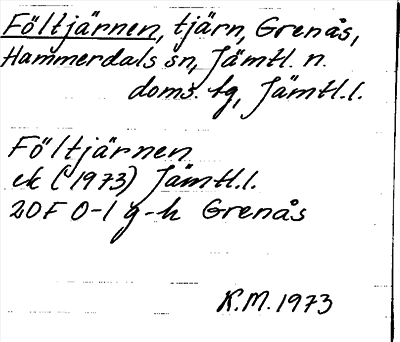 Föltjärnen, tjärn, Grenås,
Hammerdals sn, Jämtl. n.
doms. tg, Jämtl.l.
Föltjärnen
ek (1973) Jämtl.l.
20F 0-1 g-h Grenås
K.M. 1973